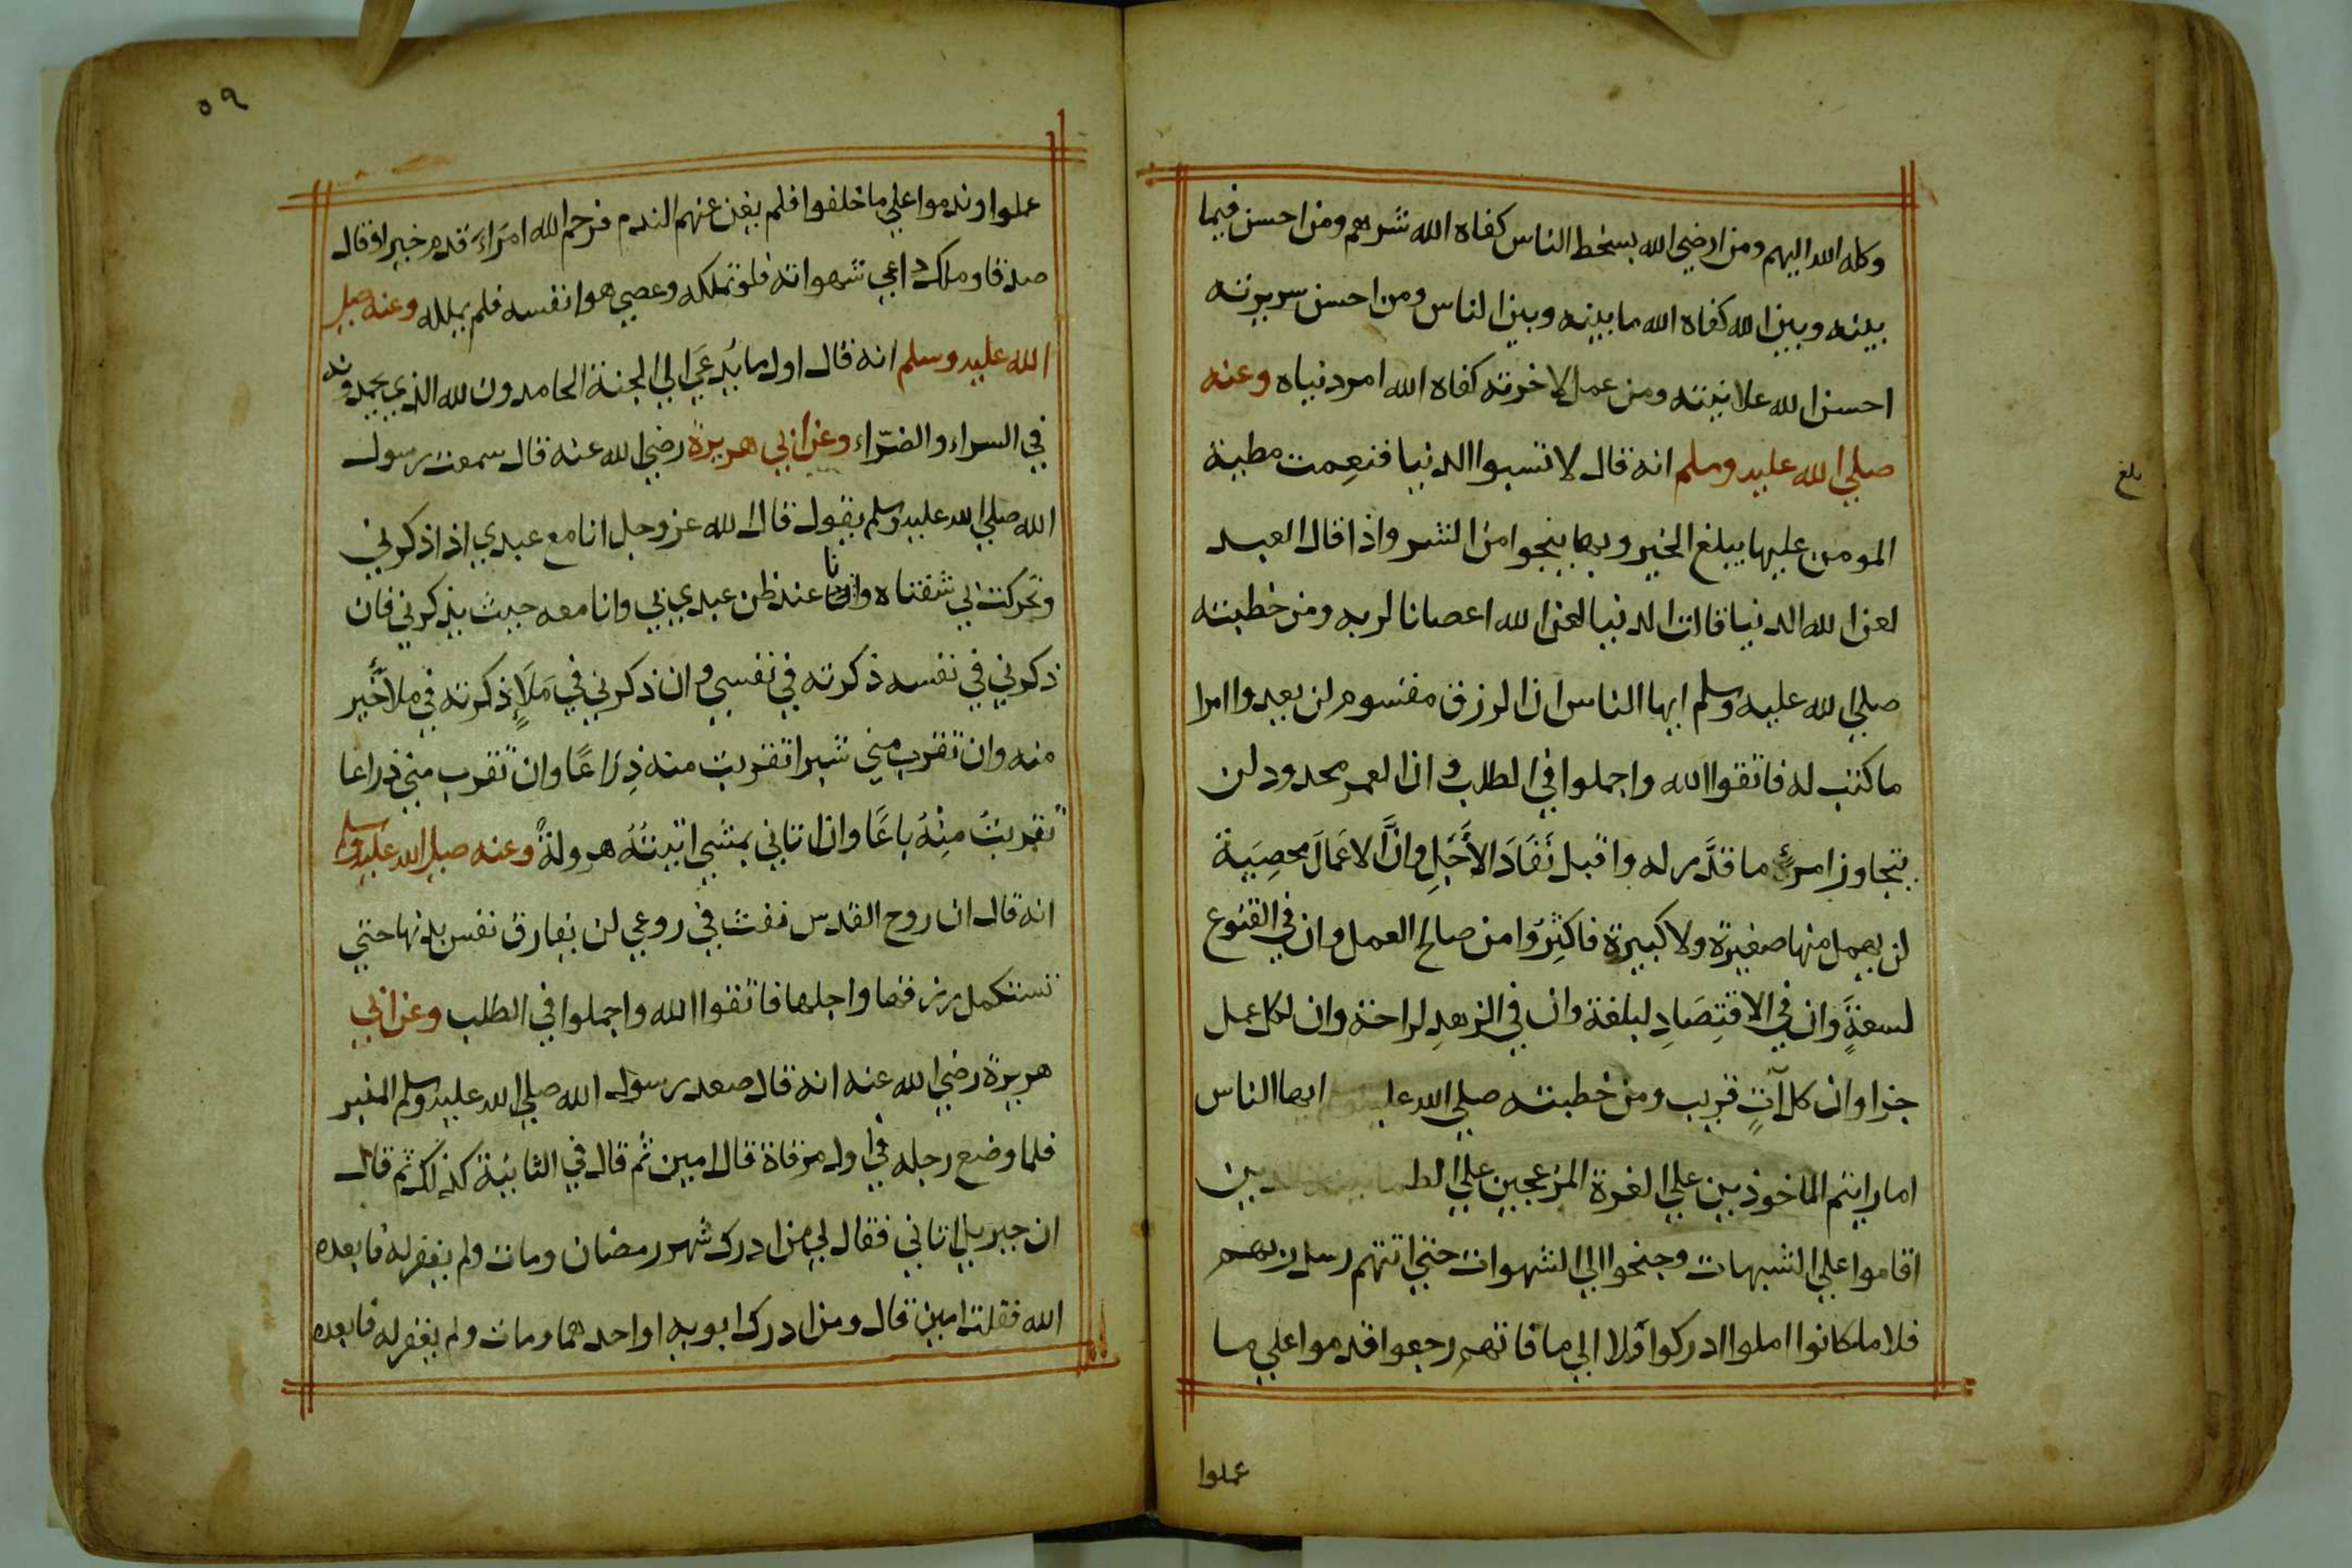 وكله الله اليهم ومن ارضي الله بسخط الناس كفاه الله شرهم ومن احسن فيما
بينه وبين الله كفاه الله ما بينه وبين الناس ومن احسن سريرته
احسن الله علانيته ومن عمل لاخرته كفاه الله امر دنياه وعنه
صلي الله عليه وسلم انه قال لا تسبوا الدنيا فنعمت مطية
المومن عليها يبلغ الخير وبها ينجوا من الشر واذا قال العبد
لعن الله الدنيا قالت الدنيا لعن الله اعصانا لربه ومن خطبته
صلي الله عليه وسلم ايها الناس ان الرزق مقسوم لن يعدوا امرا
ما كتب له فاتقوا الله واجملوا في الطلب وان العمر محدود لن
يتجاوز امرئ ما قدَّر له وا قبل نَفَادَ الأَجَلِ وانَّ الاعمَالَ محصِيَة
لن يهمل منها صغيرة ولا كبيرة فاكثِرُوا من صالح العمل وان في القنوع
لسعةً وان في الاقتِصَادِ لبلغة وان في الزهدِ لراحة وان لكل عمل
جزا وان كل آتٍ قريب ومن خطبته صلي الله عليه ايها الناس
اما رايتم الماخوذين علي الغرة المزعجين علي
اقاموا علي الشبهات وجنحوا الي الشهوات حتي اتتهم رسل ربهم
فلا ما كانوا املوا ادركوا ولا الي ما فاتهم رجعوا قدموا علي ما
عملوا
بلغ
٥٩
عملوا وندموا علي ما خلفوا فلم يغن عنهم الندم فرحم الله امرَاءَ قدم خيرا وقال
صدقا وملك داعي شهواته فلم تملكه وعصي هوا نفسه فلم يملله وعنه صلي
الله عليه وسلم انه قال اول ما يُدعَي الي الجنة الحامدون لله الذي يحمدونه
في السراء والضرّاء وعن ابي هريرة رضي الله عنه قال سمعت رسول
الله صلي الله عليه وسلم يقول قال الله عز وجل انا مع عبدي اذا ذكرني
وتحركت بي شفتاه وانا عند ظن عبدي بي وانا معه حيث يذكرني فان
ذكرني في نفسه ذكرته في نفسي وان ذكرني في مَلاٍ ذكرته في ملا خَير
منه وان تقرب مني شبرا تقربت منه ذِرَاعًا وان تقرب مني ذراعا
تقربتُ مِنْهُ باعًا وان اتاني يمشي اتيتُهُ هرولةً وعنه صلي الله عليه وسلم
انه قال ان روح القدس نفث في روعي لن يفارق نفس بدنها حتي
تستكمل رزقها واجلها فاتقوا الله واجملوا في الطلب وعن ابي
هريرة رضي الله عنه انه قال صعد رسول الله صلي الله عليه وسلم المنبر
فلما وضع رجله في اول مرقاة قال امين ثم قال في الثانية كذلك ثم قال
ان جبريل اتاني فقال لي من ادرك شهر رمضان ومات ولم يغفر له فابعده
الله فقلت امين قال ومن ادرك ابويه او احدهما ومات ولم يغفر له فابعده